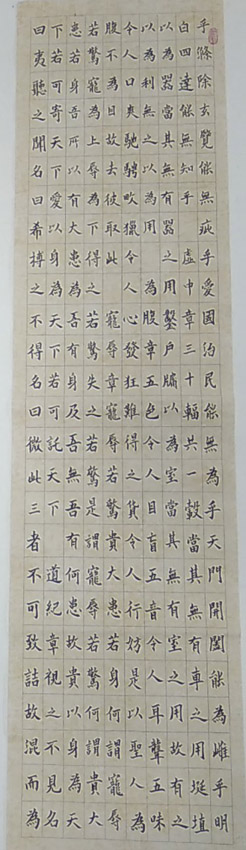 乎滌除玄覽能無疵乎愛國治民能無為乎天門開闔能為雌乎明
白四達能無知乎 虛中章三十輻共一轂當其無有車之用埏埴
以為器當其無有器之用鑿戶牖以為室當其無有室之用故有之
以為利無之以為用 為腹章五色令人目盲五音令人耳聾五味
令人口爽馳騁畋獵令人心發狂難得之貨令人行妨是以聖人為
腹不為目故去彼取此 寵辱章寵辱若驚貴大患若身何謂寵辱
若驚寵為上辱為下得之若驚失之若驚是謂寵辱若驚何謂貴大
患若身吾所以有大患為吾有身及吾無吾有何患故貴以身為天
下若可寄天下愛以身為天下若可託天下 道紀章視之不見名
曰夷聽之聞名曰希搏之不得名曰微此三者不可致詰故混而為